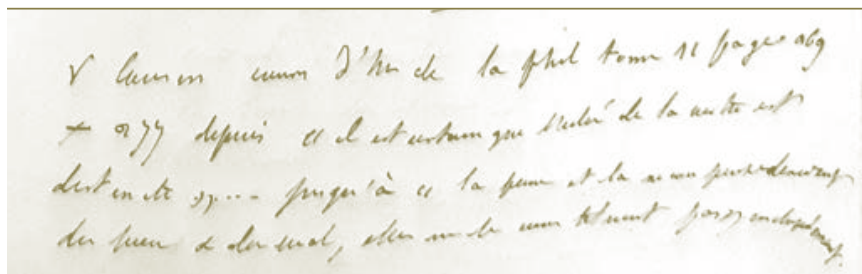 V Cousin cours d'his de la phil tome II pages 269
+ 277 depuis « il est certain que l'idée de la est
distincte jusqu'à « la peine et la
du bien & du mal, elles ne le pas